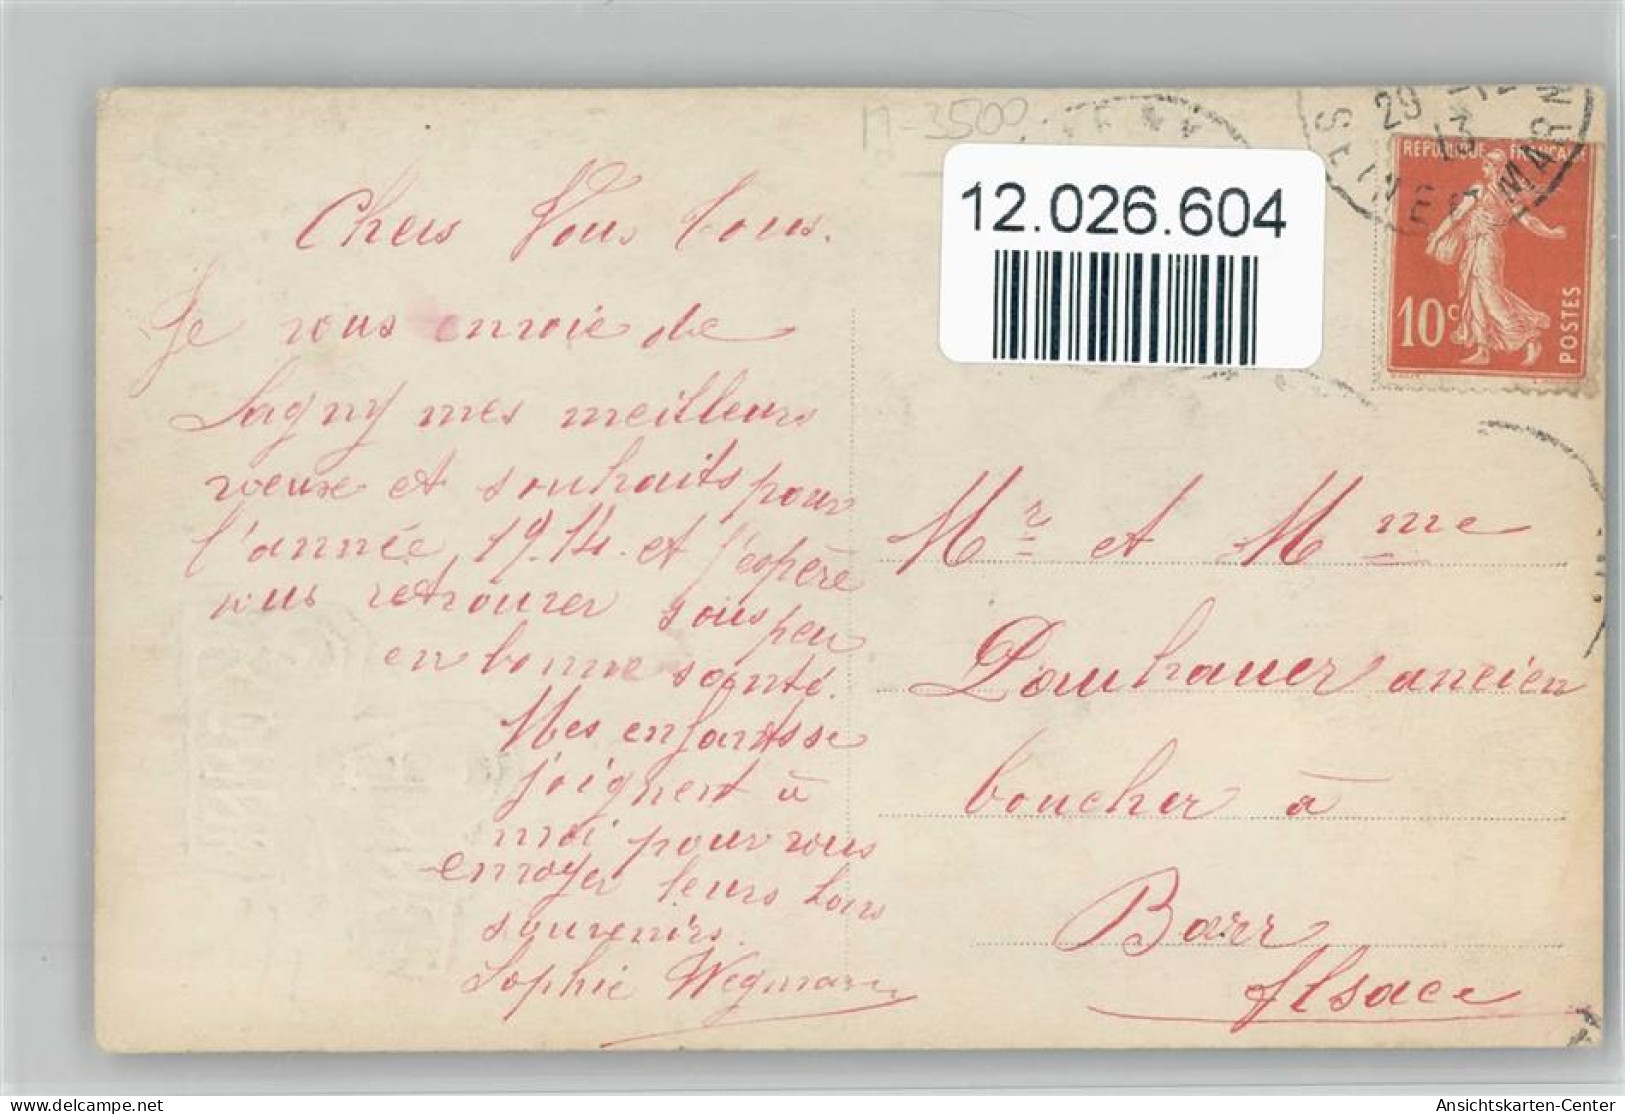 12.026.604
Π-3500
29 12
13
SEINE ET MARN
REPUBLIQUE FRANÇAISE
10c
POSTES
Chers Vous tous.
Je vous envoie de
Lagny mes meilleurs
voeux et souhaits pour
l'année 1914. et j'espère
vous retrouver sous peu
en bonne santé.
Mes enfants se
joignent à
moi pour vous
envoyer leurs bons
souvenirs.
Sophie Wegmann
Mr et Mme
Dauhauer ancien
boucher à
Barr
Alsace
delcampe.net
Ansichtskarten-Center